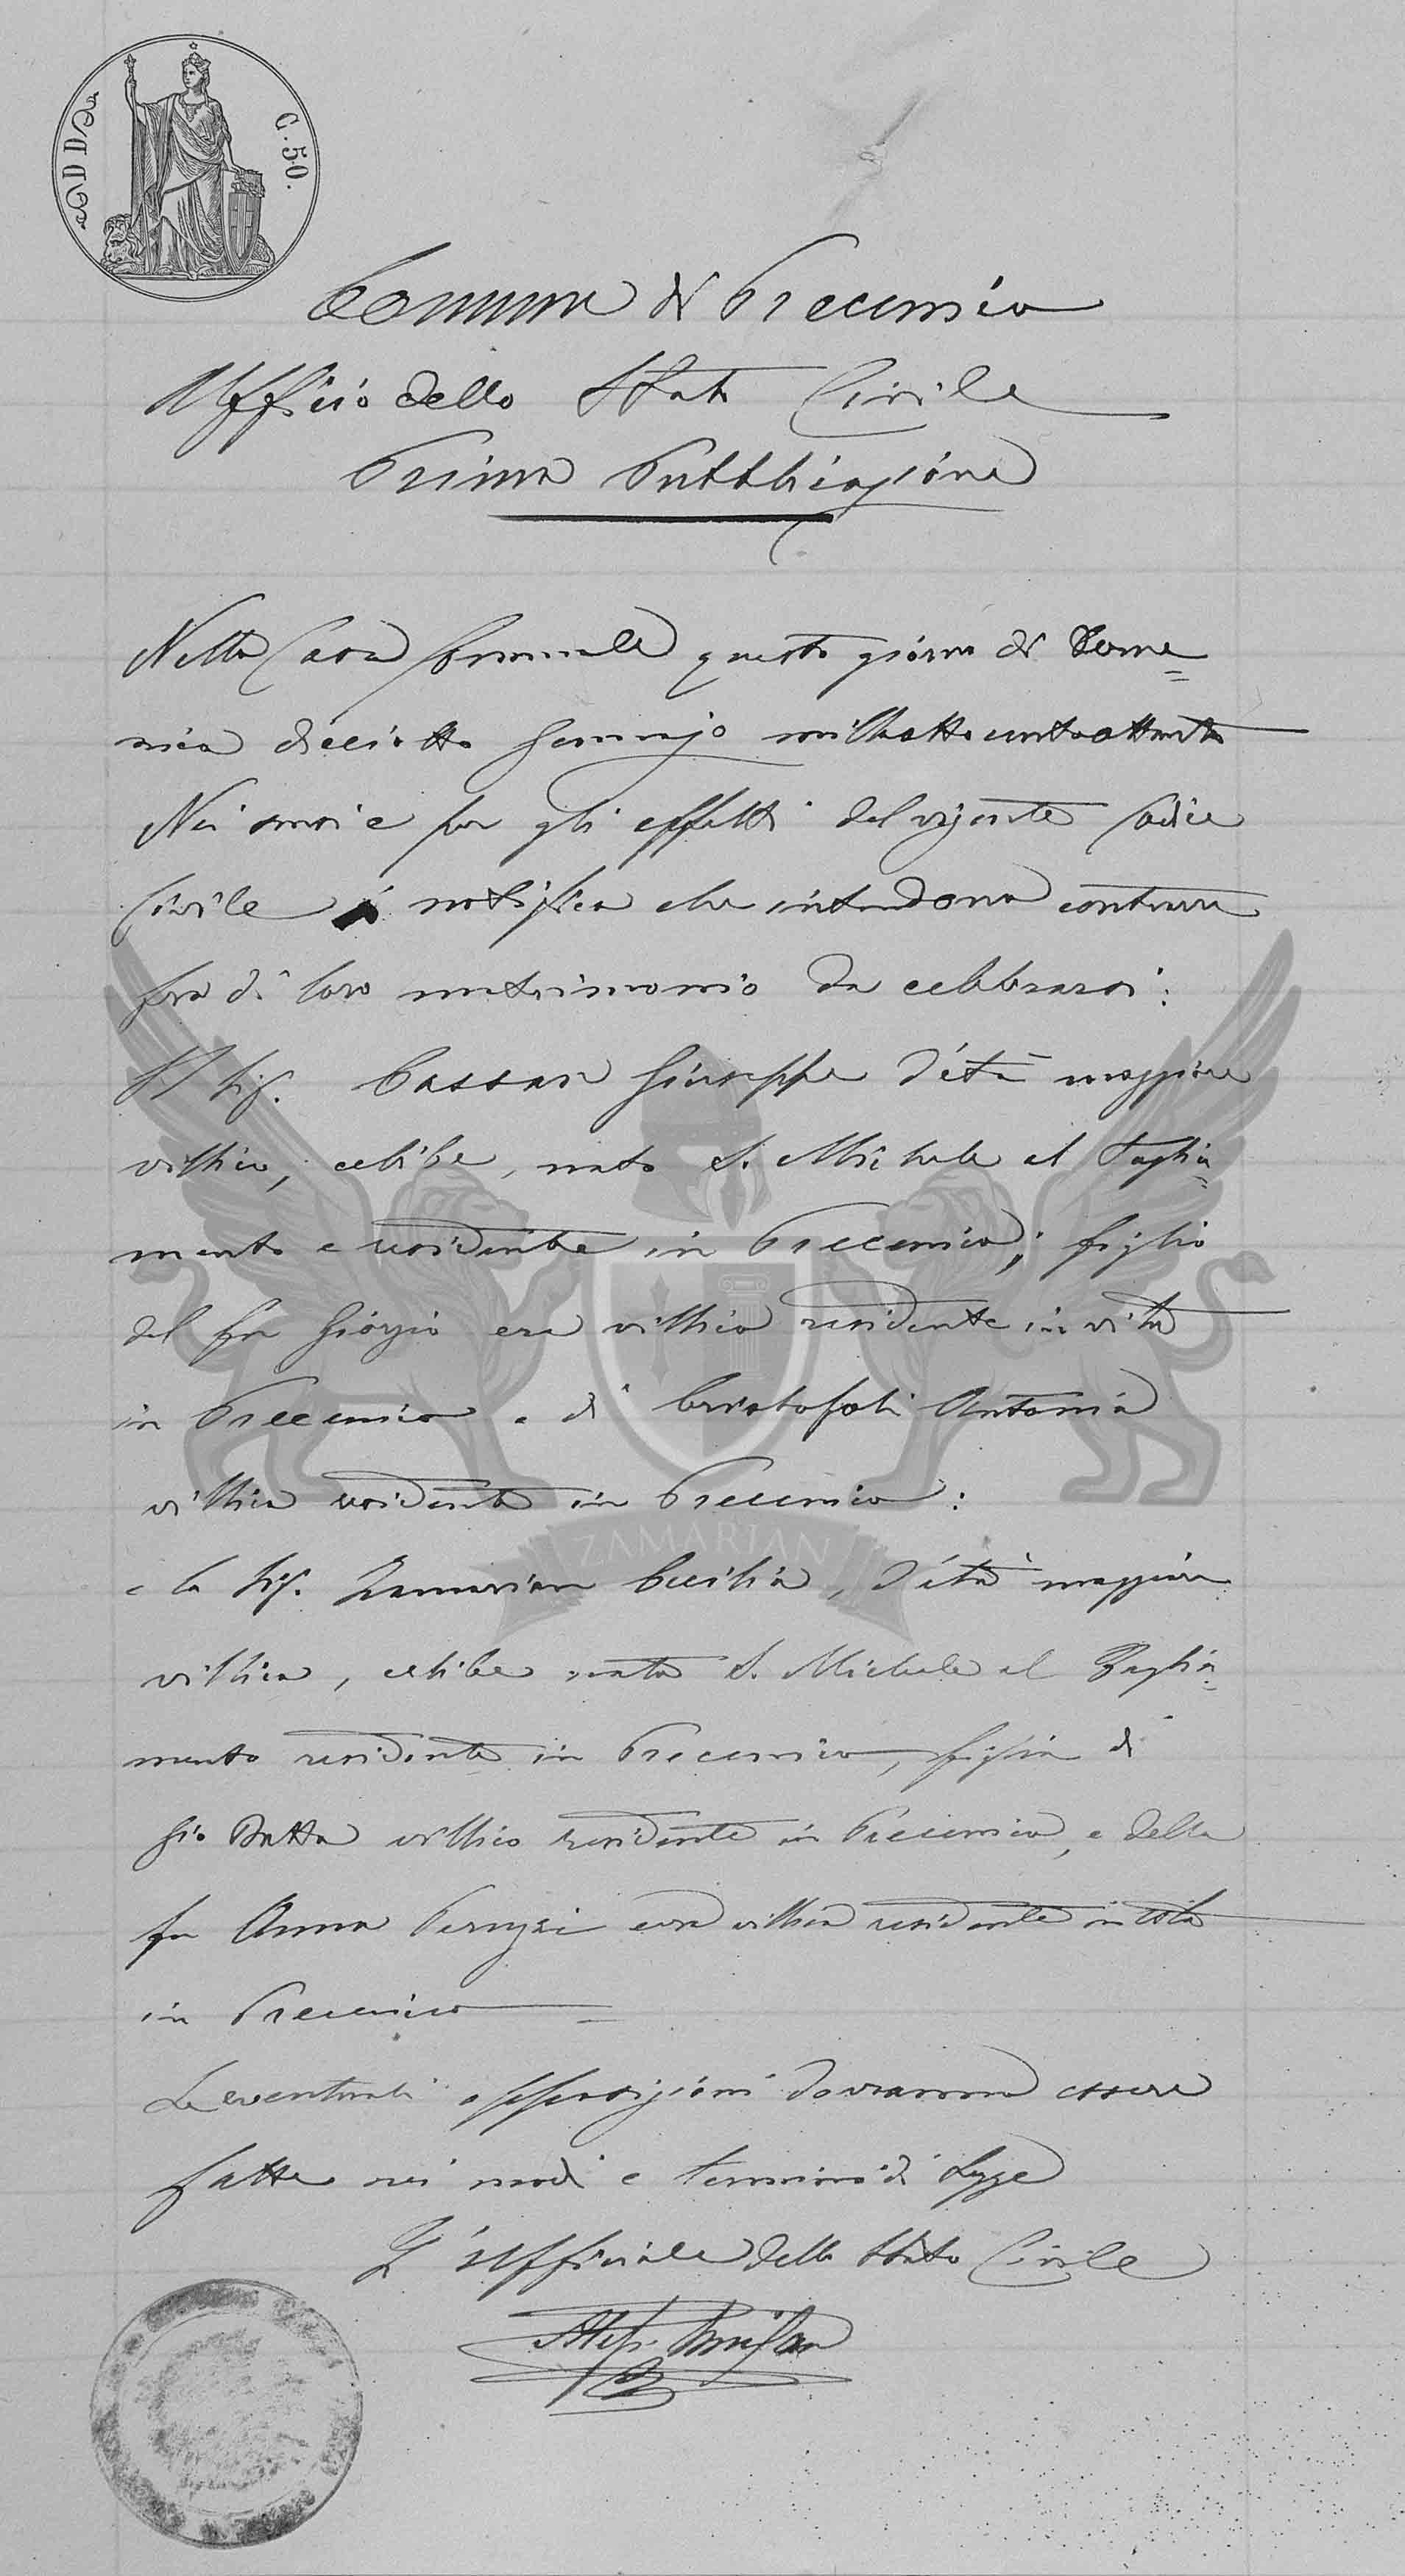 C. 50.
Comune di Precenico
Ufficio dello Stato Civile
Prima Pubblicazione
Nella Casa Comunale questo giorno di Dome=
nica dieciotto Gennajo milleottocentoottanta
Nei modi e per gli effetti del vigente Codice
Civile si notifica che intendono contrarre
fra di loro matrimonio da celebrarsi:
Il Sig. Cassan Giuseppe d'età maggiore
villico, celibe, nato S. Michele al Taglia=
mento e residente in Precenico; figlio
del fu Giorgio era villico residente in vita
in Precenico e di Cristofoli Antonia
villica residente in Precenico:
e la Sig. Zamarian Cecilia, d'età maggiore
villica, celibe nata S. Michele al Taglia=
mento residente in Precenico, figlia di
Gio Batta villico residente in Precenico, e della
fu Anna era villica residente in vita
in Precenico
Le eventuali opposizioni dovranno essere
fatte nei modi e termini di Legge
L'Ufficiale dello Stato Civile
ZAMARIAN